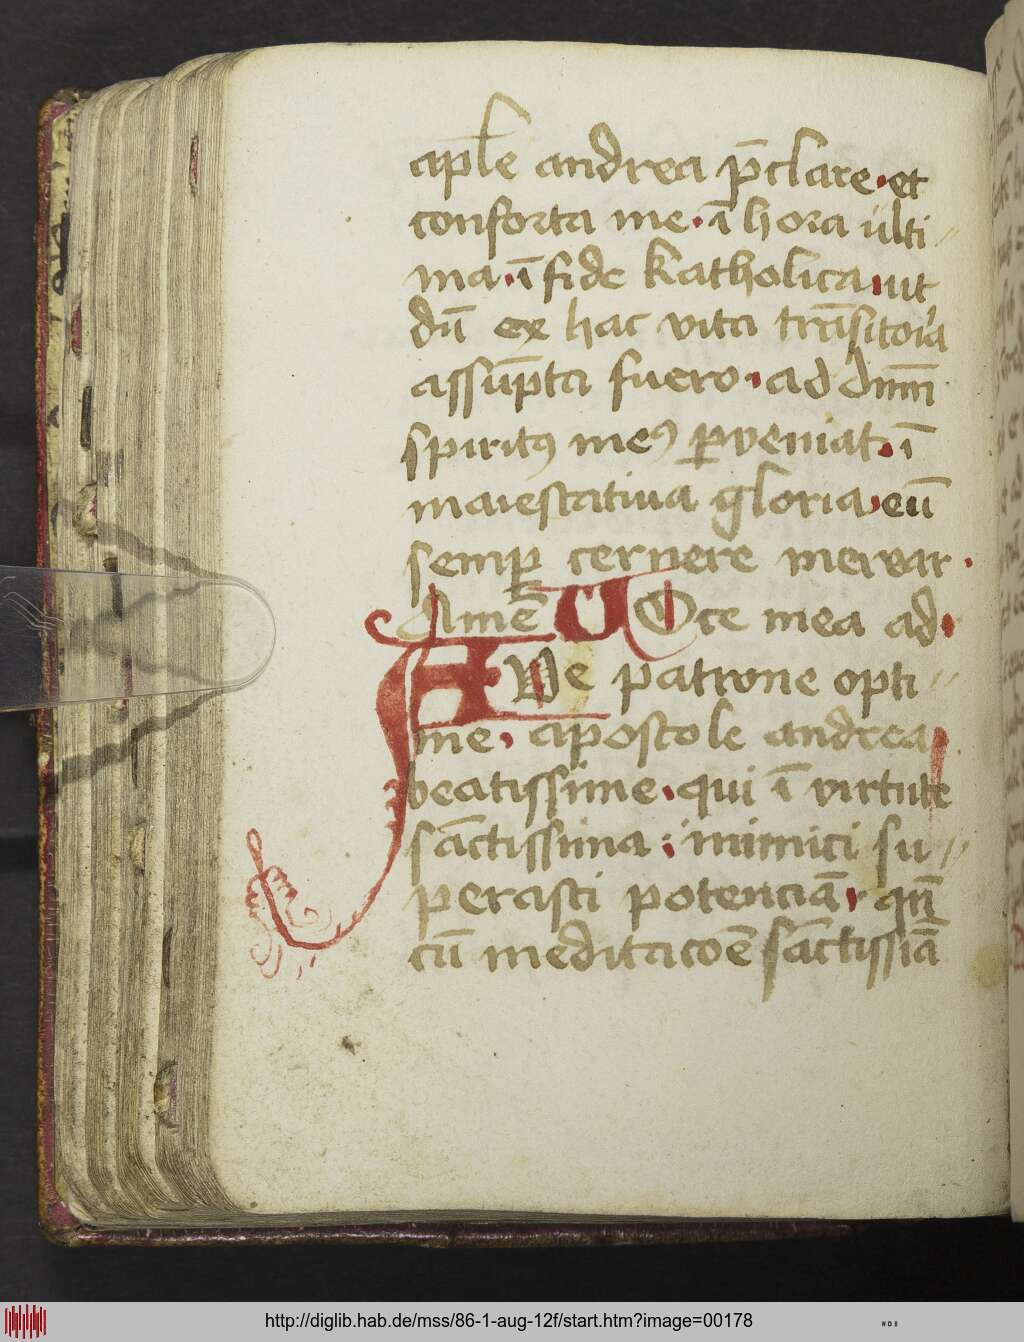 aplҽ andrea p̄clare · et
conforta me · ī hora ulti〃
ma · ī fide katholica · ut
dū ex hac vita trāsitoria
assūpta fuero · ad dnm̄
spiritꝯ meꝯ ꝑveniat · ī
maiestativa gloria · eū
semꝑ cernere merear ·
Amē V Oce mea ad ·
A We patrone opti〃
me · apostole andrea
beatissime · qui ī virtute
sāctissima · inimici su〃
perasti potenciā · qn̄
cū meditacōe sāctissīa
http://diglib.hab.de/mss/86-1-aug-12f/start.htm?image=00178